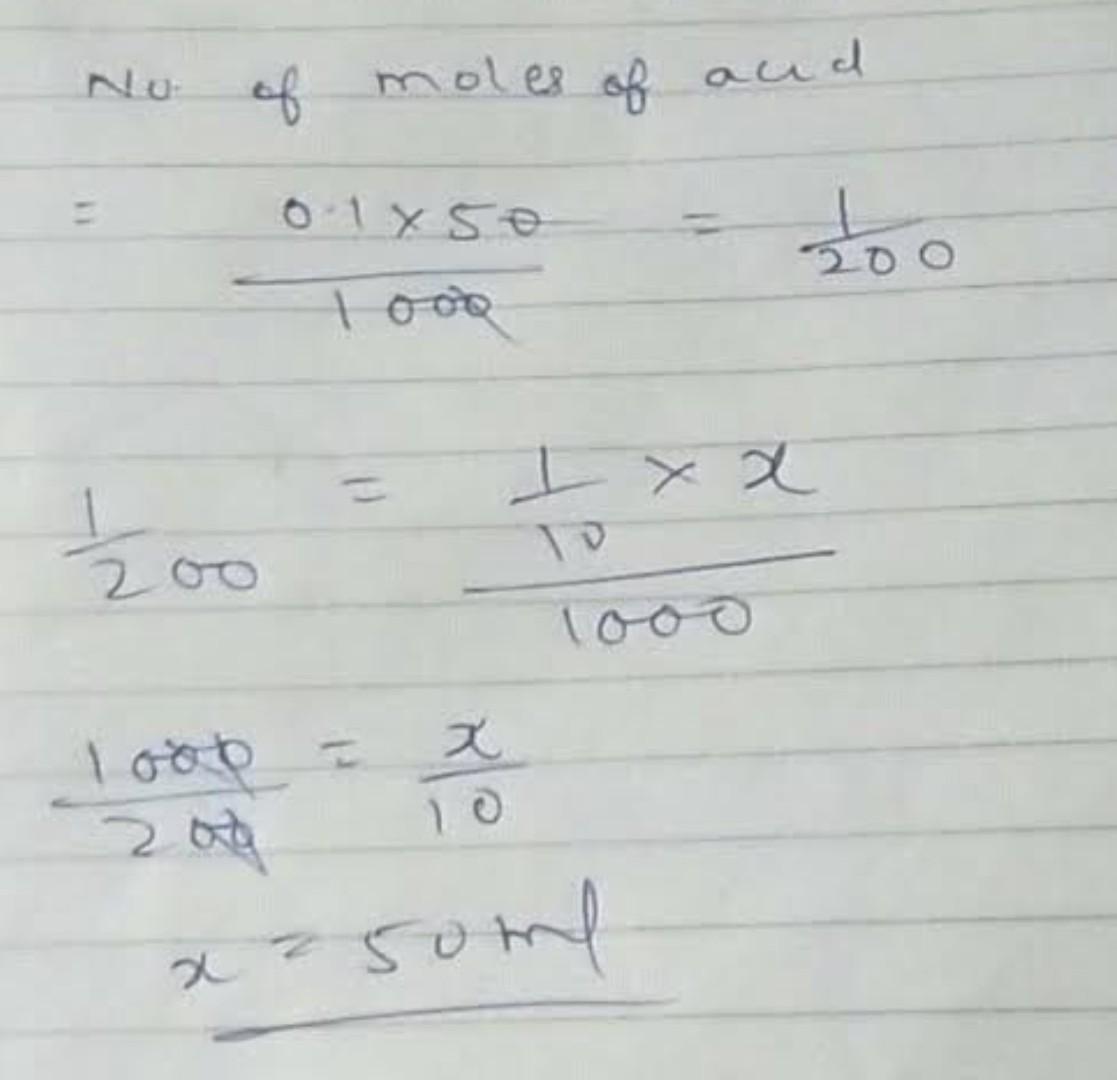 No. of moles of acid
= 0.1 × 50 / 1000 = 1/200
1/200 = 1/10 × x / 1000
1000/200 = x/10
x = 50 ml